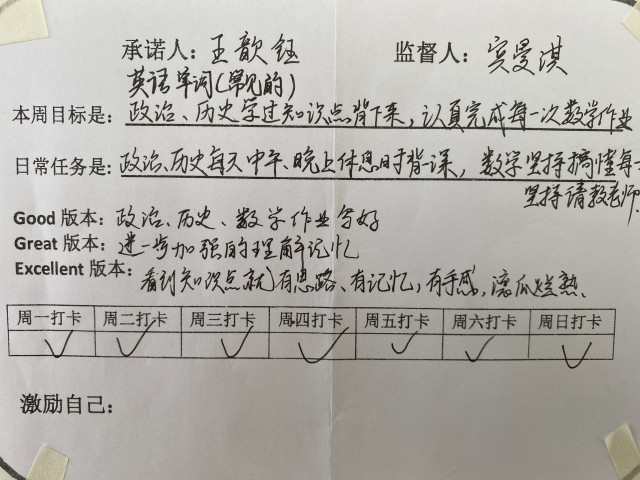 承诺人：王歆钰 监督人：宾曼淇
英语单词(常见的)
本周目标是：政治、历史学过知识点背下来，认真完成每一次数学作业
日常任务是：政治、历史每天中午、晚上休息时背课，数学坚持搞懂每
坚持请教老师
Good 版本：政治、历史、数学作业写好
Great 版本：进一步加强的理解记忆
Excellent 版本：看到知识点就有思路、有记忆，有手感，滚瓜烂熟.
周一打卡 周二打卡 周三打卡 周四打卡 周五打卡 周六打卡 周日打卡
✓ ✓ ✓ ✓ ✓ ✓ ✓
激励自己：